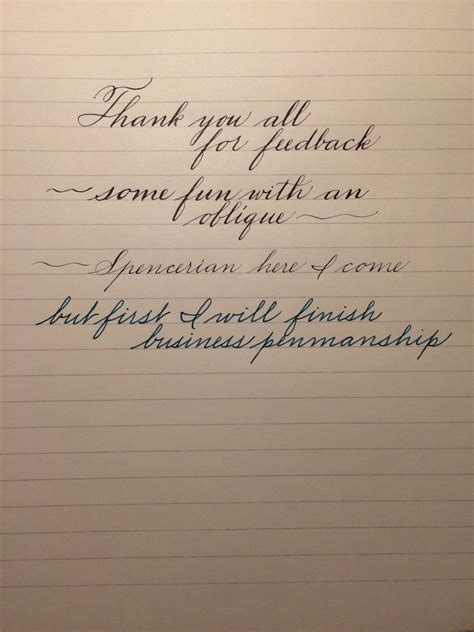 Thank you all
for feedback
~ some fun with an
oblique ~
~ Spencerian here I come
but first I will finish
business penmanship